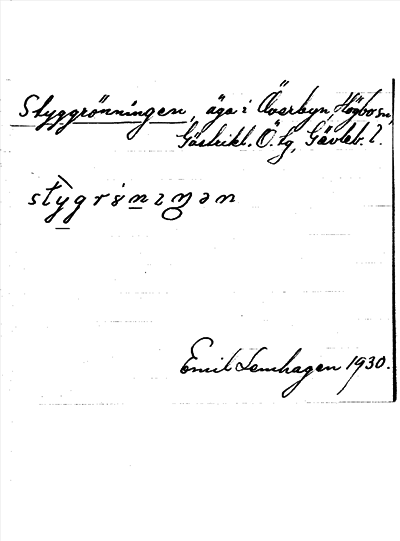 Styggrönningen, äga i Överbyn, Högbo sn,
Gästrikl. Ö. tg, Gävleb. l.
Emil Lemhagen 1930.